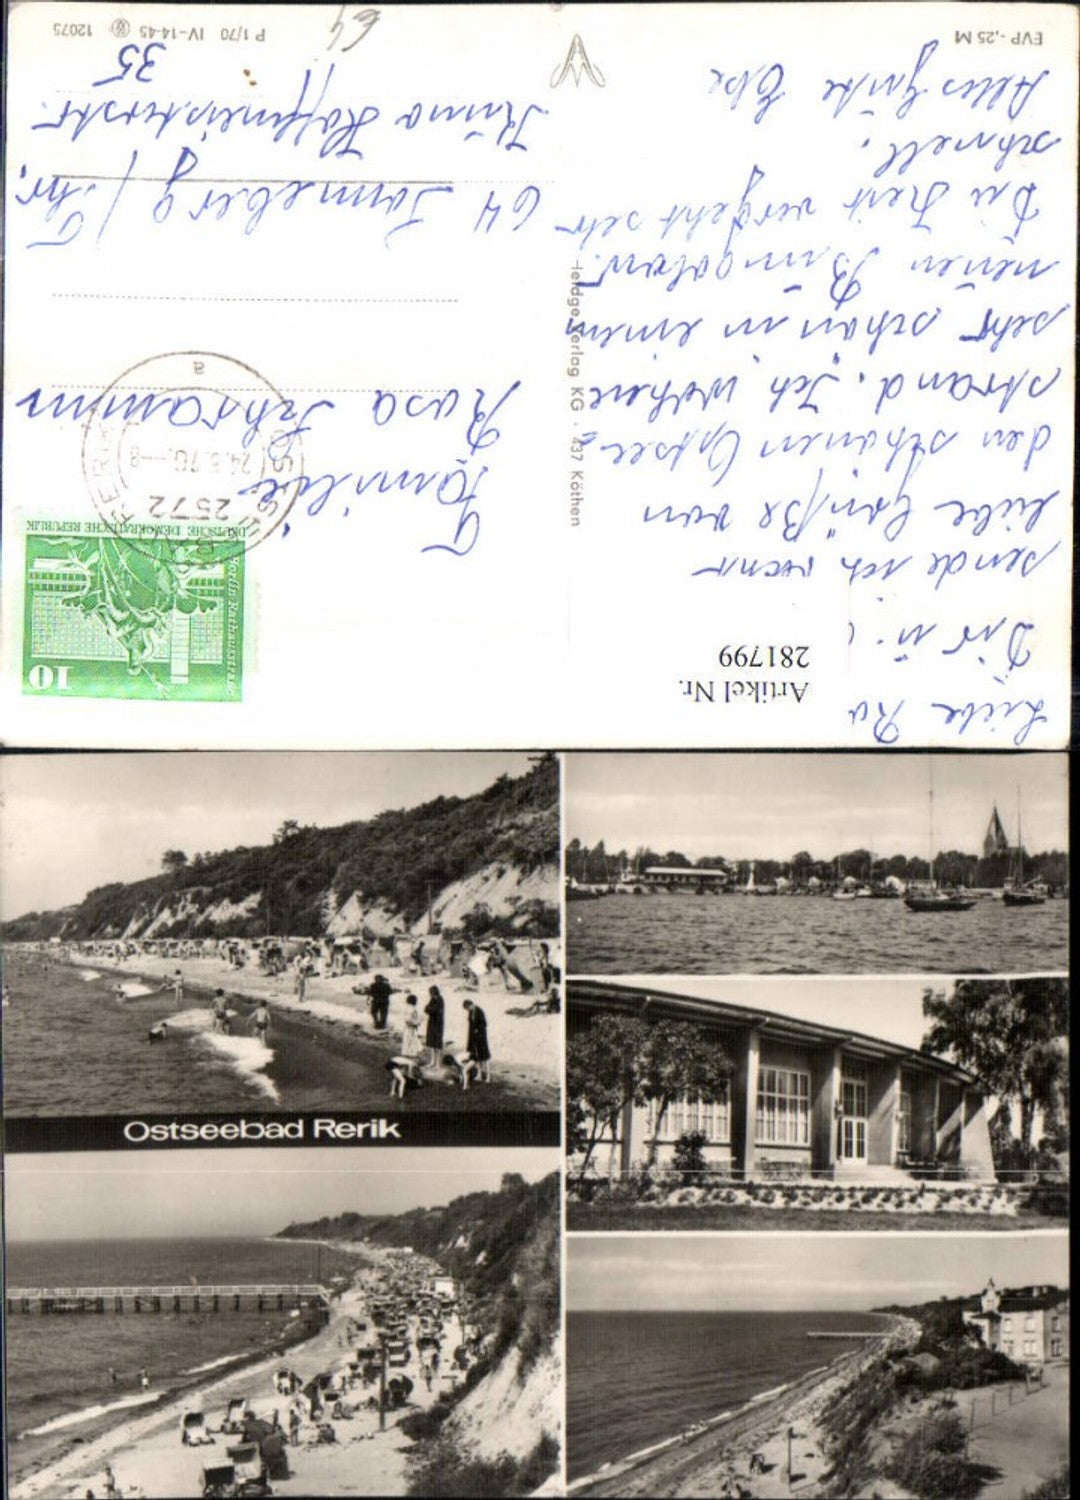 EVP -,25 M
Liebe Ro
Dir u.
sende ich
liebe Grüße von
den schönen Ostsee=
strand. Ich wohne
sehr schön in einem
neuen Bungalow.
Die Zeit vergeht sehr
schnell.
Alles Gute Else
Artikel Nr.
281799
Verlag KG · 437 Köthen
P 1/70 IV-14-45 12075
64
Familie
Rosa Schramm
64 Sonneberg / Thür.
Hoffmeisterstr.
35
OSTSEEBAD RERIK
2572
24.8.76.-8
a
DEUTSCHE DEMOKRATISCHE REPUBLIK
Berlin Rathausstraße
10
Ostseebad Rerik